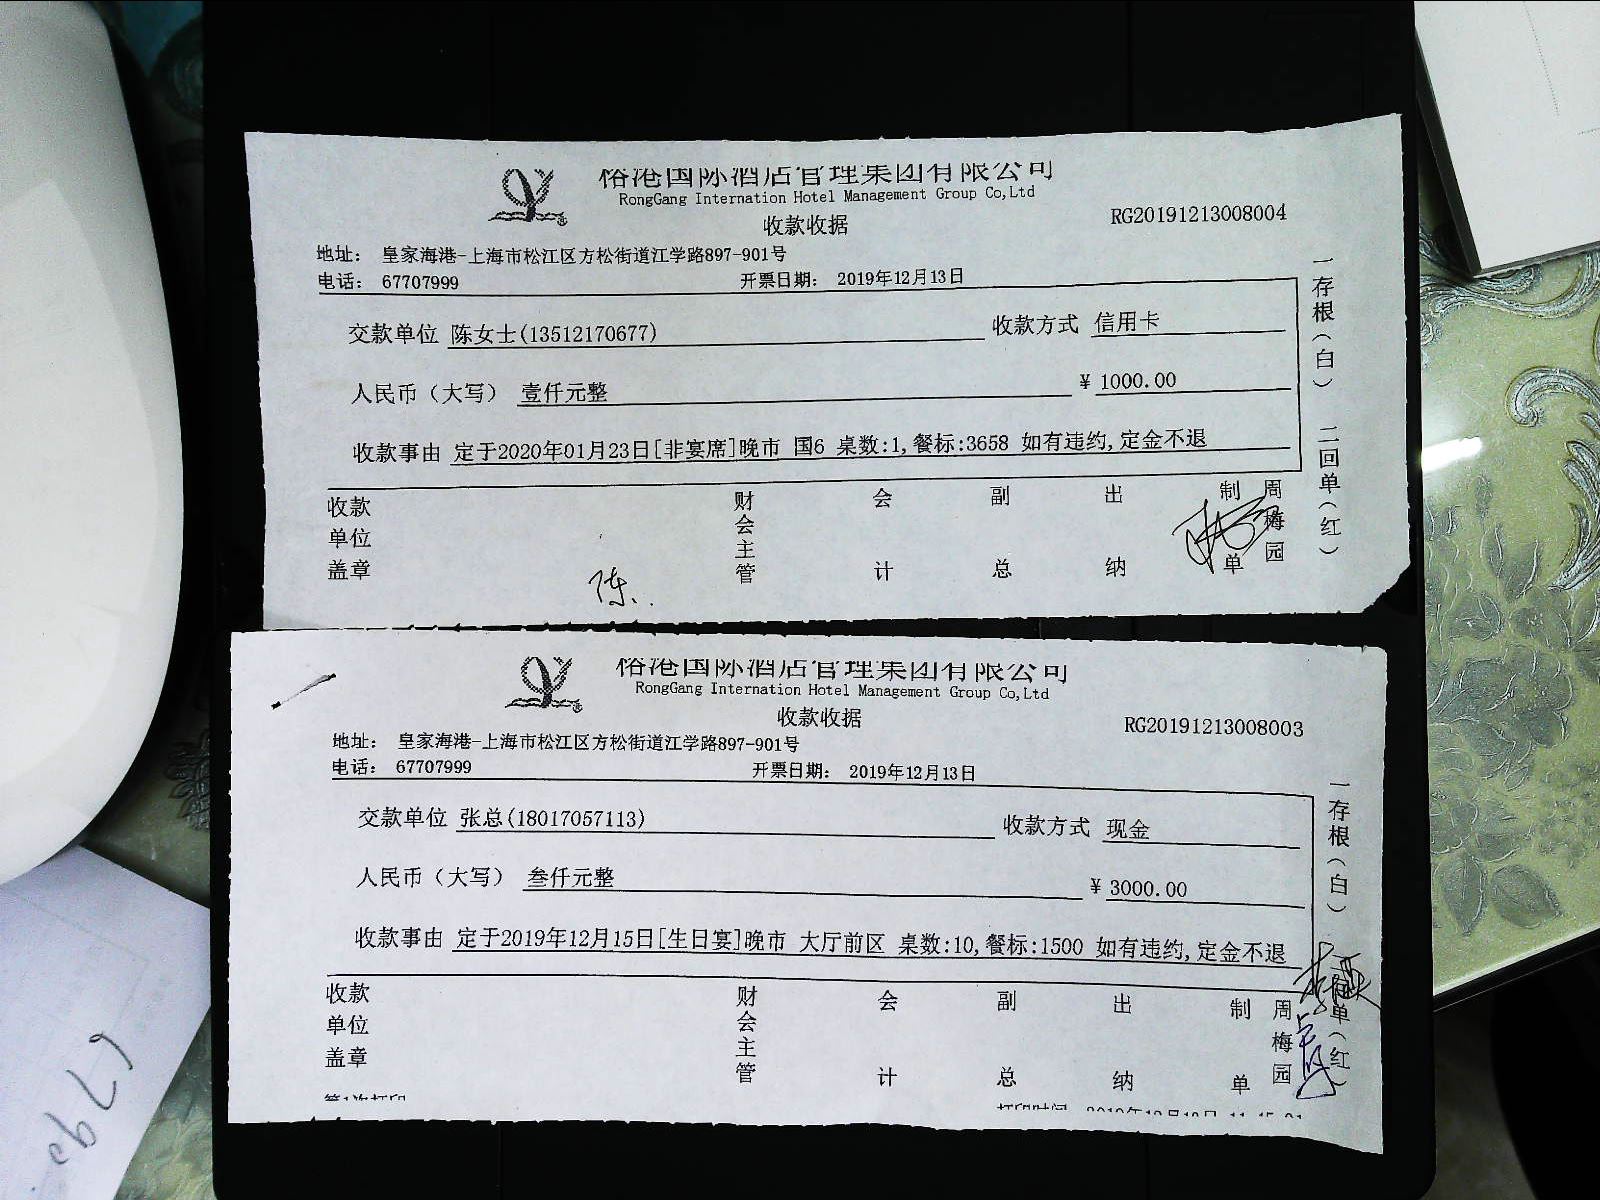 裕港国际酒店管理集团有限公司
RongGang Internation Hotel Management Group Co,Ltd
收款收据
RG20191213008004
地址： 皇家海港-上海市松江区方松街道江学路897-901号
电话： 67707999 开票日期： 2019年12月13日
交款单位 陈女士(13512170677) 收款方式 信用卡
人民币（大写） 壹仟元整 ¥ 1000.00
收款事由 定于2020年01月23日[非宴席]晚市 国6 桌数:1,餐标:3658 如有违约,定金不退
收款单位盖章 财会主管 会计 副总 出纳 制单 周梅园
陈
一存根（白） 二回单（红）
裕港国际酒店管理集团有限公司
RongGang Internation Hotel Management Group Co,Ltd
收款收据
RG20191213008003
地址： 皇家海港-上海市松江区方松街道江学路897-901号
电话： 67707999 开票日期： 2019年12月13日
交款单位 张总(18017057113) 收款方式 现金
人民币（大写） 叁仟元整 ¥ 3000.00
收款事由 定于2019年12月15日[生日宴]晚市 大厅前区 桌数:10,餐标:1500 如有违约,定金不退
收款单位盖章 财会主管 会计 副总 出纳 制单 周梅园
一存根（白） 二回单（红）
第1次打印
打印时间